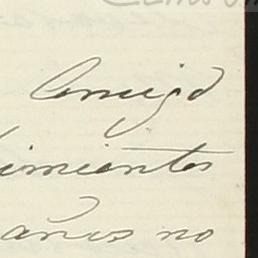 Amigo
imientos
años no